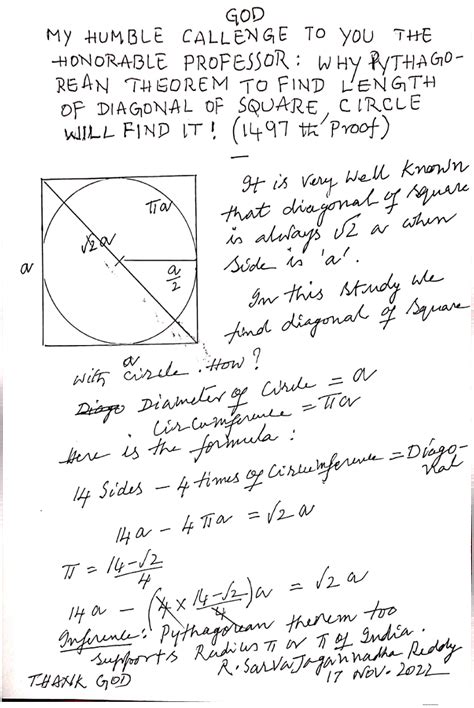 GOD
MY HUMBLE CALLENGE TO YOU THE
HONORABLE PROFESSOR: WHY PYTHAGO-
REAN THEOREM TO FIND LENGTH
OF DIAGONAL OF SQUARE, CIRCLE
WILL FIND IT! (1497 th Proof)
It is very well known
that diagonal of square
is always √2 a when
side is 'a'.
In this study we
find diagonal of square
πa
√2 a
a
a/2
a
with a circle. How?
Diago Diameter of Circle = a
Circumference = πa
Here is the formula:
14 Sides – 4 times of Circumference = Diago-
nal
14a – 4πa = √2 a
π = (14-√2)/4
14a – (4 × (14-√2)/4)a = √2 a
Inference: Pythagorean theorem too
supports Radius π or π of India.
R. Sarva Jagannadha Reddy
THANK GOD
17 NOV. 2022